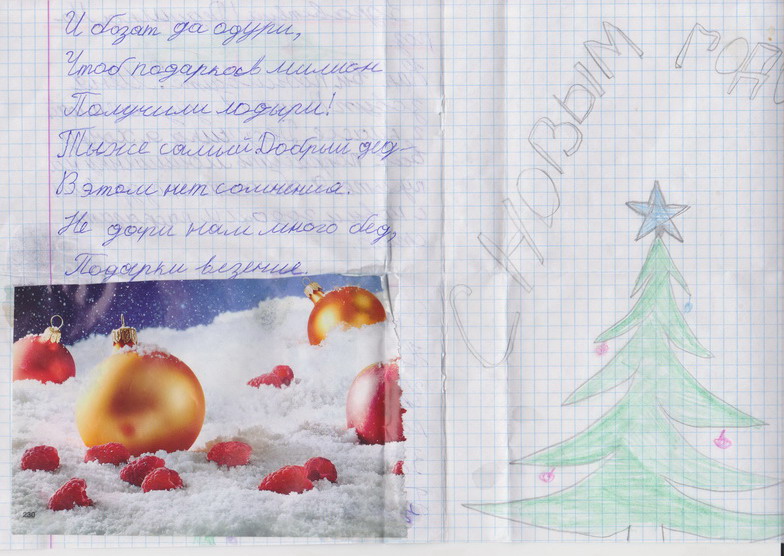 И богат да одури,
Чтоб подарков милион
Получили лодыри!
Ты же самый Добрый дед-
В этом нет сомнения.
Не дари нам много бед,
Подарки везение.
230
С НОВЫМ ГОД